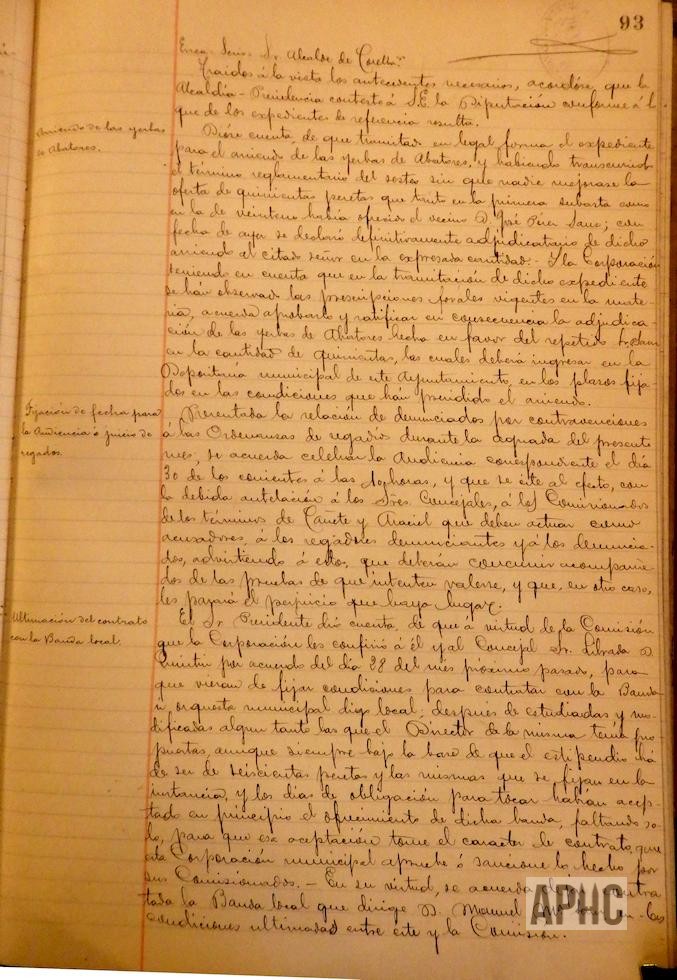 93
Excmo. Señor. Sr. Alcalde de Corella.
Traidos á la vista los antecedentes necesarios, acordóse, que la
Alcaldia-Presidencia conteste á S.E. la Diputación conforme á lo
que de los expedientes de referencia resulta.
Arriendo de las yerbas
de Abatores.
Dióse cuenta, de que tramitado en legal forma el expediente
para el arriendo de las yerbas de Abatores, y habiendo transcurrido
el término reglamentario del sexteo sin que nadie mejorase la
oferta de quinientas pesetas que tanto en la primera subasta como
en la de veinteno habia ofrecido el vecino D. José; con
fecha de ayer se declaró definitivamente adjudicatario de dicho
arriendo al citado señor en la expresada cantidad.- Y la Corporación
teniendo en cuenta que en la tramitación de dicho expediente
se han observado las prescripciones forales vigentes en la mate-
ria, acuerda aprobarlo y ratificar en consecuencia la adjudica-
ción de las yerbas de Abatores hecha en favor del repetido
en la cantidad de quinientas, las cuales deberá ingresar en la
Depositaria municipal de este Ayuntamiento, en los plazos fija-
dos en las condiciones que han presidido el arriendo.
Fijación de fecha para
la Audiencia ó juicio de
regados.
Presentada la relación de denunciados por contravenciones
á las Ordenanzas de regadio durante la aguada del presente
mes, se acuerda celebrar la Audiencia correspondiente el dia
30 de los corrientes á las horas, y que se cite al efecto, con
la debida antelación á los Sres. Concejales, á los Comisionados
de los términos de Cañete y Araciel que deben actuar como
acusadores, á los regadores denunciantes y á los denuncia-
dos, advirtiendo á estos, que deberán concurrir acompaña-
dos de las pruebas de que intenten valerse, y que, en otro caso,
les parará el perjuicio que haya lugar.
Ultimación del contrato
con la Banda local.
El Sr. Presidente dió cuenta, de que á virtud de la Comisión
que la Corporación les confirió á él y al Concejal Sr. Librada D.
por acuerdo del dia 28 del mes próximo pasado, para
que vieran de fijar condiciones para contratar con la Banda
ú orquesta municipal digo local; después de estudiadas y mo-
dificadas algun tanto las que el Director de la misma tenia pro-
puestas, aunque siempre bajo la base de que el estipendio há
de ser de seiscientas pesetas y las mismas que se fijan en la
instancia, y los dias de obligación para tocar habian acep-
tado en principio el ofrecimiento de dicha banda, faltando so-
lo, para que esa aceptación tome el carácter de contrato, que
esta Corporación municipal apruebe ó sancione lo hecho por
sus Comisionados.- En su virtud, se acuerda
tada la Banda local que dirige D. Manuel en las
condiciones ultimadas entre este y la Comisión.
APHC